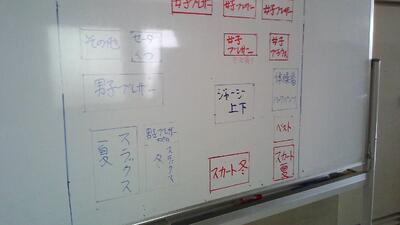 女子ブレザー 女子ブレザー 女子ブレザー
その他 セーター
女子ブレザー 女子
男子ブレザー
ジャージー
上下
体操着
ハーフパンツ
夏 スラックス
男子ブレザー
冬 スラックス
ベスト
スカート 冬
スカート 夏